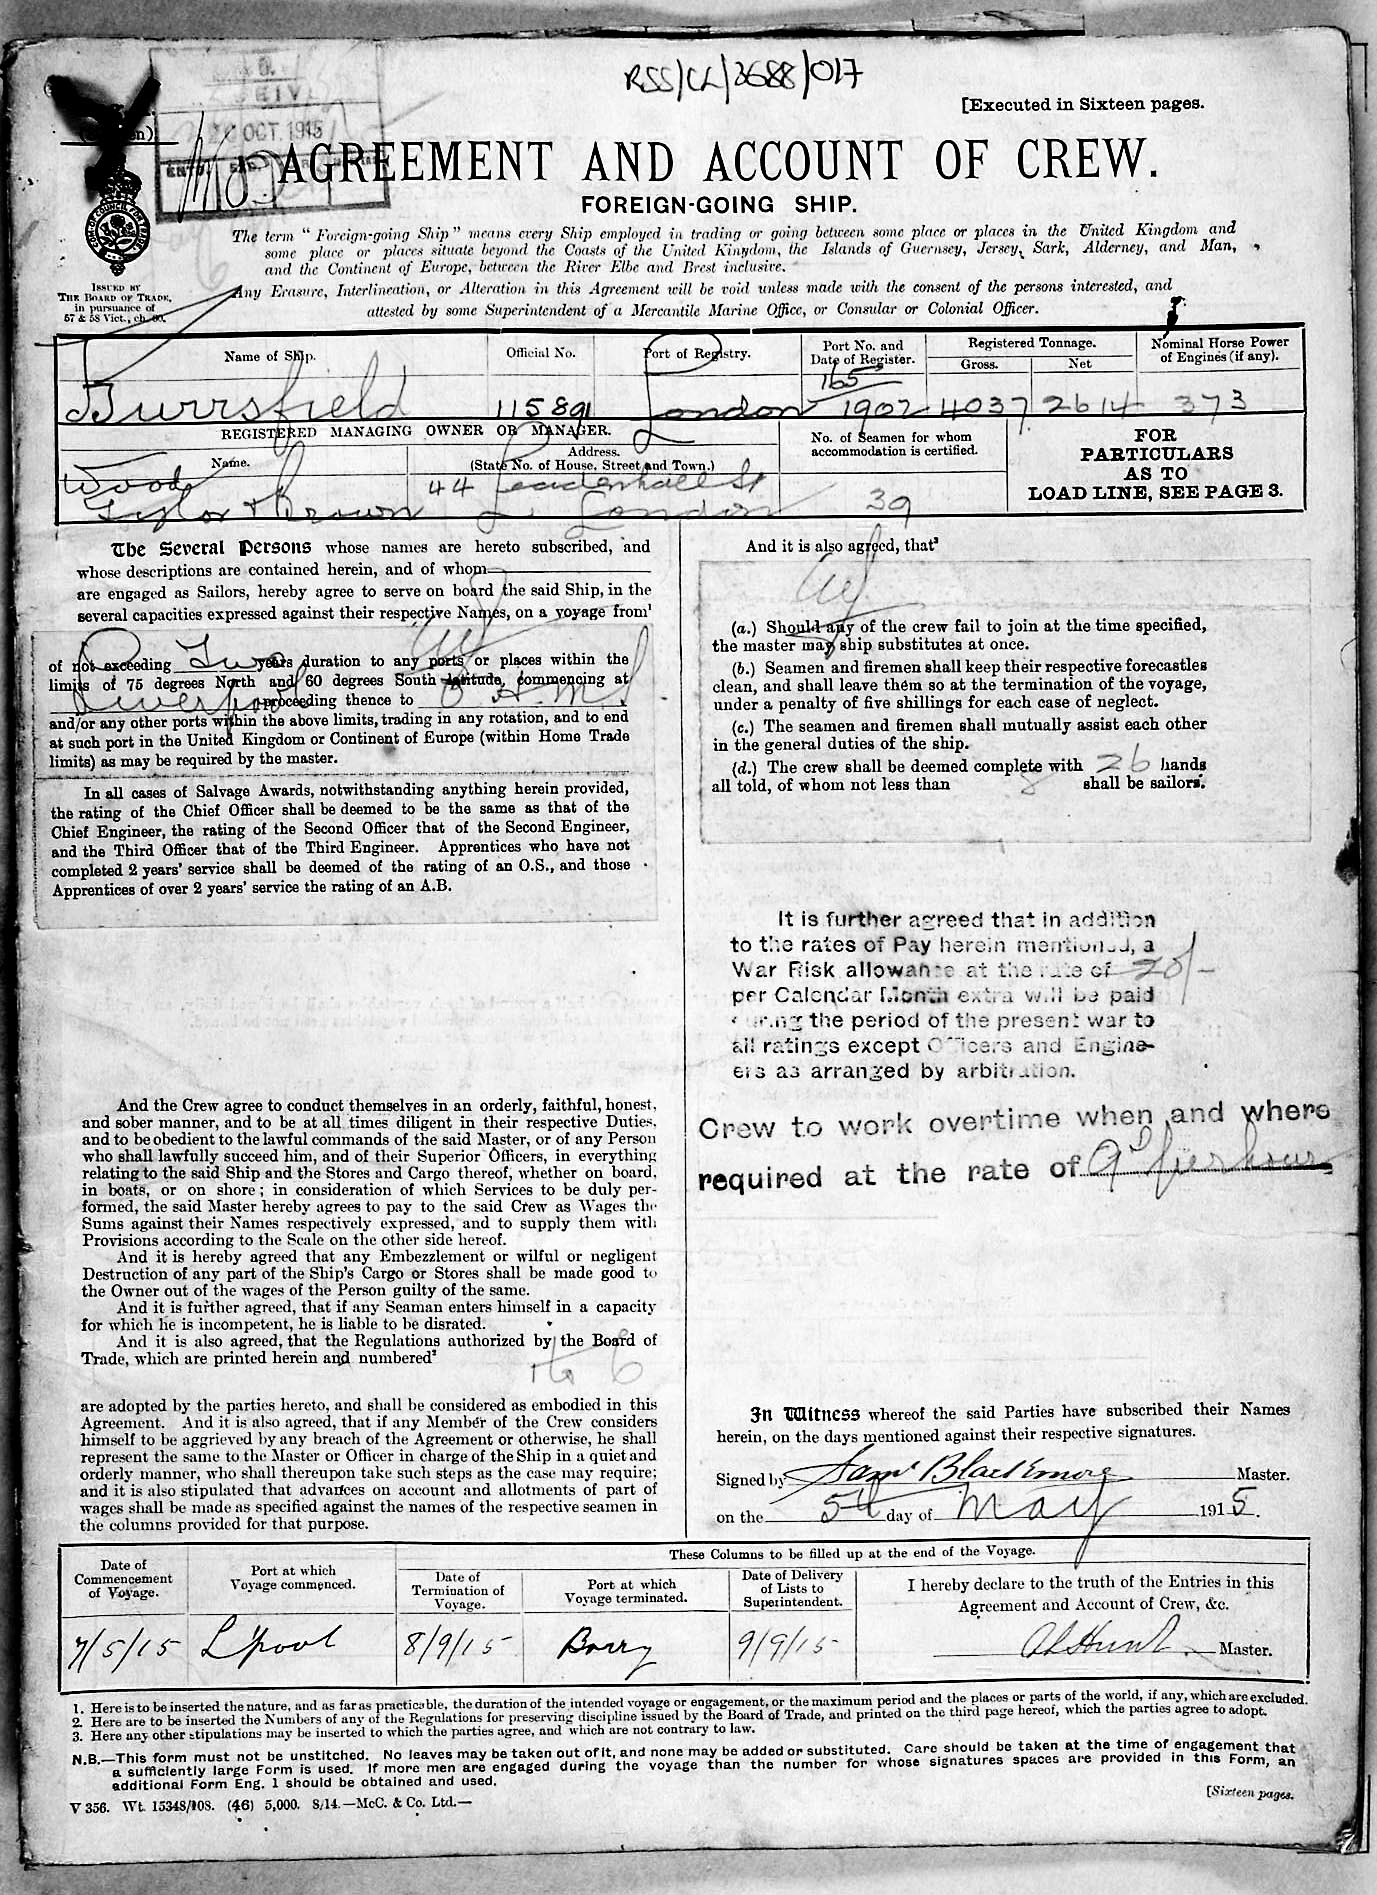 RSS/CL/3688/017
[Executed in Sixteen pages.
OCT. 1915
AGREEMENT AND ACCOUNT OF CREW.
FOREIGN-GOING SHIP.
The term "Foreign-going Ship" means every Ship employed in trading or going between some place or places in the United Kingdom and
some place or places situate beyond the Coasts of the United Kingdom, the Islands of Guernsey, Jersey, Sark, Alderney, and Man,
and the Continent of Europe, between the River Elbe and Brest inclusive.
Any Erasure, Interlineation, or Alteration in this Agreement will be void unless made with the consent of the persons interested, and
attested by some Superintendent of a Mercantile Marine Office, or Consular or Colonial Officer.
ISSUED BY
THE BOARD OF TRADE,
in pursuance of
57 & 58 Vict., ch. 60.
Name of Ship.
Official No.
Port of Registry.
Port No. and
Date of Register.
Registered Tonnage.
Gross.
Net
Nominal Horse Power
of Engines (if any).
Burrsfield
115891
London
165
1902
4037
2614
373
REGISTERED MANAGING OWNER OR MANAGER.
Name.
Address.
(State No. of House, Street and Town.)
No. of Seamen for whom
accommodation is certified.
FOR
PARTICULARS
AS TO
LOAD LINE, SEE PAGE 3.
Woods
Tylor & Brown
44 Leadenhall St
London
39
The Several Persons whose names are hereto subscribed, and
whose descriptions are contained herein, and of whom
are engaged as Sailors, hereby agree to serve on board the said Ship, in the
several capacities expressed against their respective Names, on a voyage from¹
of not exceeding Two years duration to any ports or places within the
limits of 75 degrees North and 60 degrees South latitude, commencing at
Liverpool proceeding thence to O.H.M.S.
and/or any other ports within the above limits, trading in any rotation, and to end
at such port in the United Kingdom or Continent of Europe (within Home Trade
limits) as may be required by the master.
In all cases of Salvage Awards, notwithstanding anything herein provided,
the rating of the Chief Officer shall be deemed to be the same as that of the
Chief Engineer, the rating of the Second Officer that of the Second Engineer,
and the Third Officer that of the Third Engineer. Apprentices who have not
completed 2 years' service shall be deemed of the rating of an O.S., and those
Apprentices of over 2 years' service the rating of an A.B.
And the Crew agree to conduct themselves in an orderly, faithful, honest,
and sober manner, and to be at all times diligent in their respective Duties,
and to be obedient to the lawful commands of the said Master, or of any Person
who shall lawfully succeed him, and of their Superior Officers, in everything
relating to the said Ship and the Stores and Cargo thereof, whether on board,
in boats, or on shore; in consideration of which Services to be duly per-
formed, the said Master hereby agrees to pay to the said Crew as Wages the
Sums against their Names respectively expressed, and to supply them with
Provisions according to the Scale on the other side hereof.
And it is hereby agreed that any Embezzlement or wilful or negligent
Destruction of any part of the Ship's Cargo or Stores shall be made good to
the Owner out of the wages of the Person guilty of the same.
And it is further agreed, that if any Seaman enters himself in a capacity
for which he is incompetent, he is liable to be disrated.
And it is also agreed, that the Regulations authorized by the Board of
Trade, which are printed herein and numbered²
1 to 6
are adopted by the parties hereto, and shall be considered as embodied in this
Agreement. And it is also agreed, that if any Member of the Crew considers
himself to be aggrieved by any breach of the Agreement or otherwise, he shall
represent the same to the Master or Officer in charge of the Ship in a quiet and
orderly manner, who shall thereupon take such steps as the case may require;
and it is also stipulated that advances on account and allotments of part of
wages shall be made as specified against the names of the respective seamen in
the columns provided for that purpose.
And it is also agreed, that³
(a.) Should any of the crew fail to join at the time specified,
the master may ship substitutes at once.
(b.) Seamen and firemen shall keep their respective forecastles
clean, and shall leave them so at the termination of the voyage,
under a penalty of five shillings for each case of neglect.
(c.) The seamen and firemen shall mutually assist each other
in the general duties of the ship.
(d.) The crew shall be deemed complete with 26 hands
all told, of whom not less than 8 shall be sailors.
It is further agreed that in addition
to the rates of Pay herein mentioned, a
War Risk allowance at the rate of 20/-
per Calendar Month extra will be paid
during the period of the present war to
all ratings except Officers and Engine-
ers as arranged by arbitration.
Crew to work overtime when and where
required at the rate of 9d per hour
In Witness whereof the said Parties have subscribed their Names
herein, on the days mentioned against their respective signatures.
Signed by Saml Blackmore Master.
on the 5th day of May 1915.
These Columns to be filled up at the end of the Voyage.
Date of
Commencement
of Voyage.
Port at which
Voyage commenced.
Date of
Termination of
Voyage.
Port at which
Voyage terminated.
Date of Delivery
of Lists to
Superintendent.
I hereby declare to the truth of the Entries in this
Agreement and Account of Crew, &c.
7/5/15
L'pool
8/9/15
Barry
9/9/15
Hunt Master.
1. Here is to be inserted the nature, and as far as practicable, the duration of the intended voyage or engagement, or the maximum period and the places or parts of the world, if any, which are excluded.
2. Here are to be inserted the Numbers of any of the Regulations for preserving discipline issued by the Board of Trade, and printed on the third page hereof, which the parties agree to adopt.
3. Here any other stipulations may be inserted to which the parties agree, and which are not contrary to law.
N.B.—This form must not be unstitched. No leaves may be taken out of it, and none may be added or substituted. Care should be taken at the time of engagement that
a sufficiently large Form is used. If more men are engaged during the voyage than the number for whose signatures spaces are provided in this Form, an
additional Form Eng. 1 should be obtained and used.
V 356. Wt. 15348/108. (46) 5,000. 8/14.—McC. & Co. Ltd.—
[Sixteen pages.